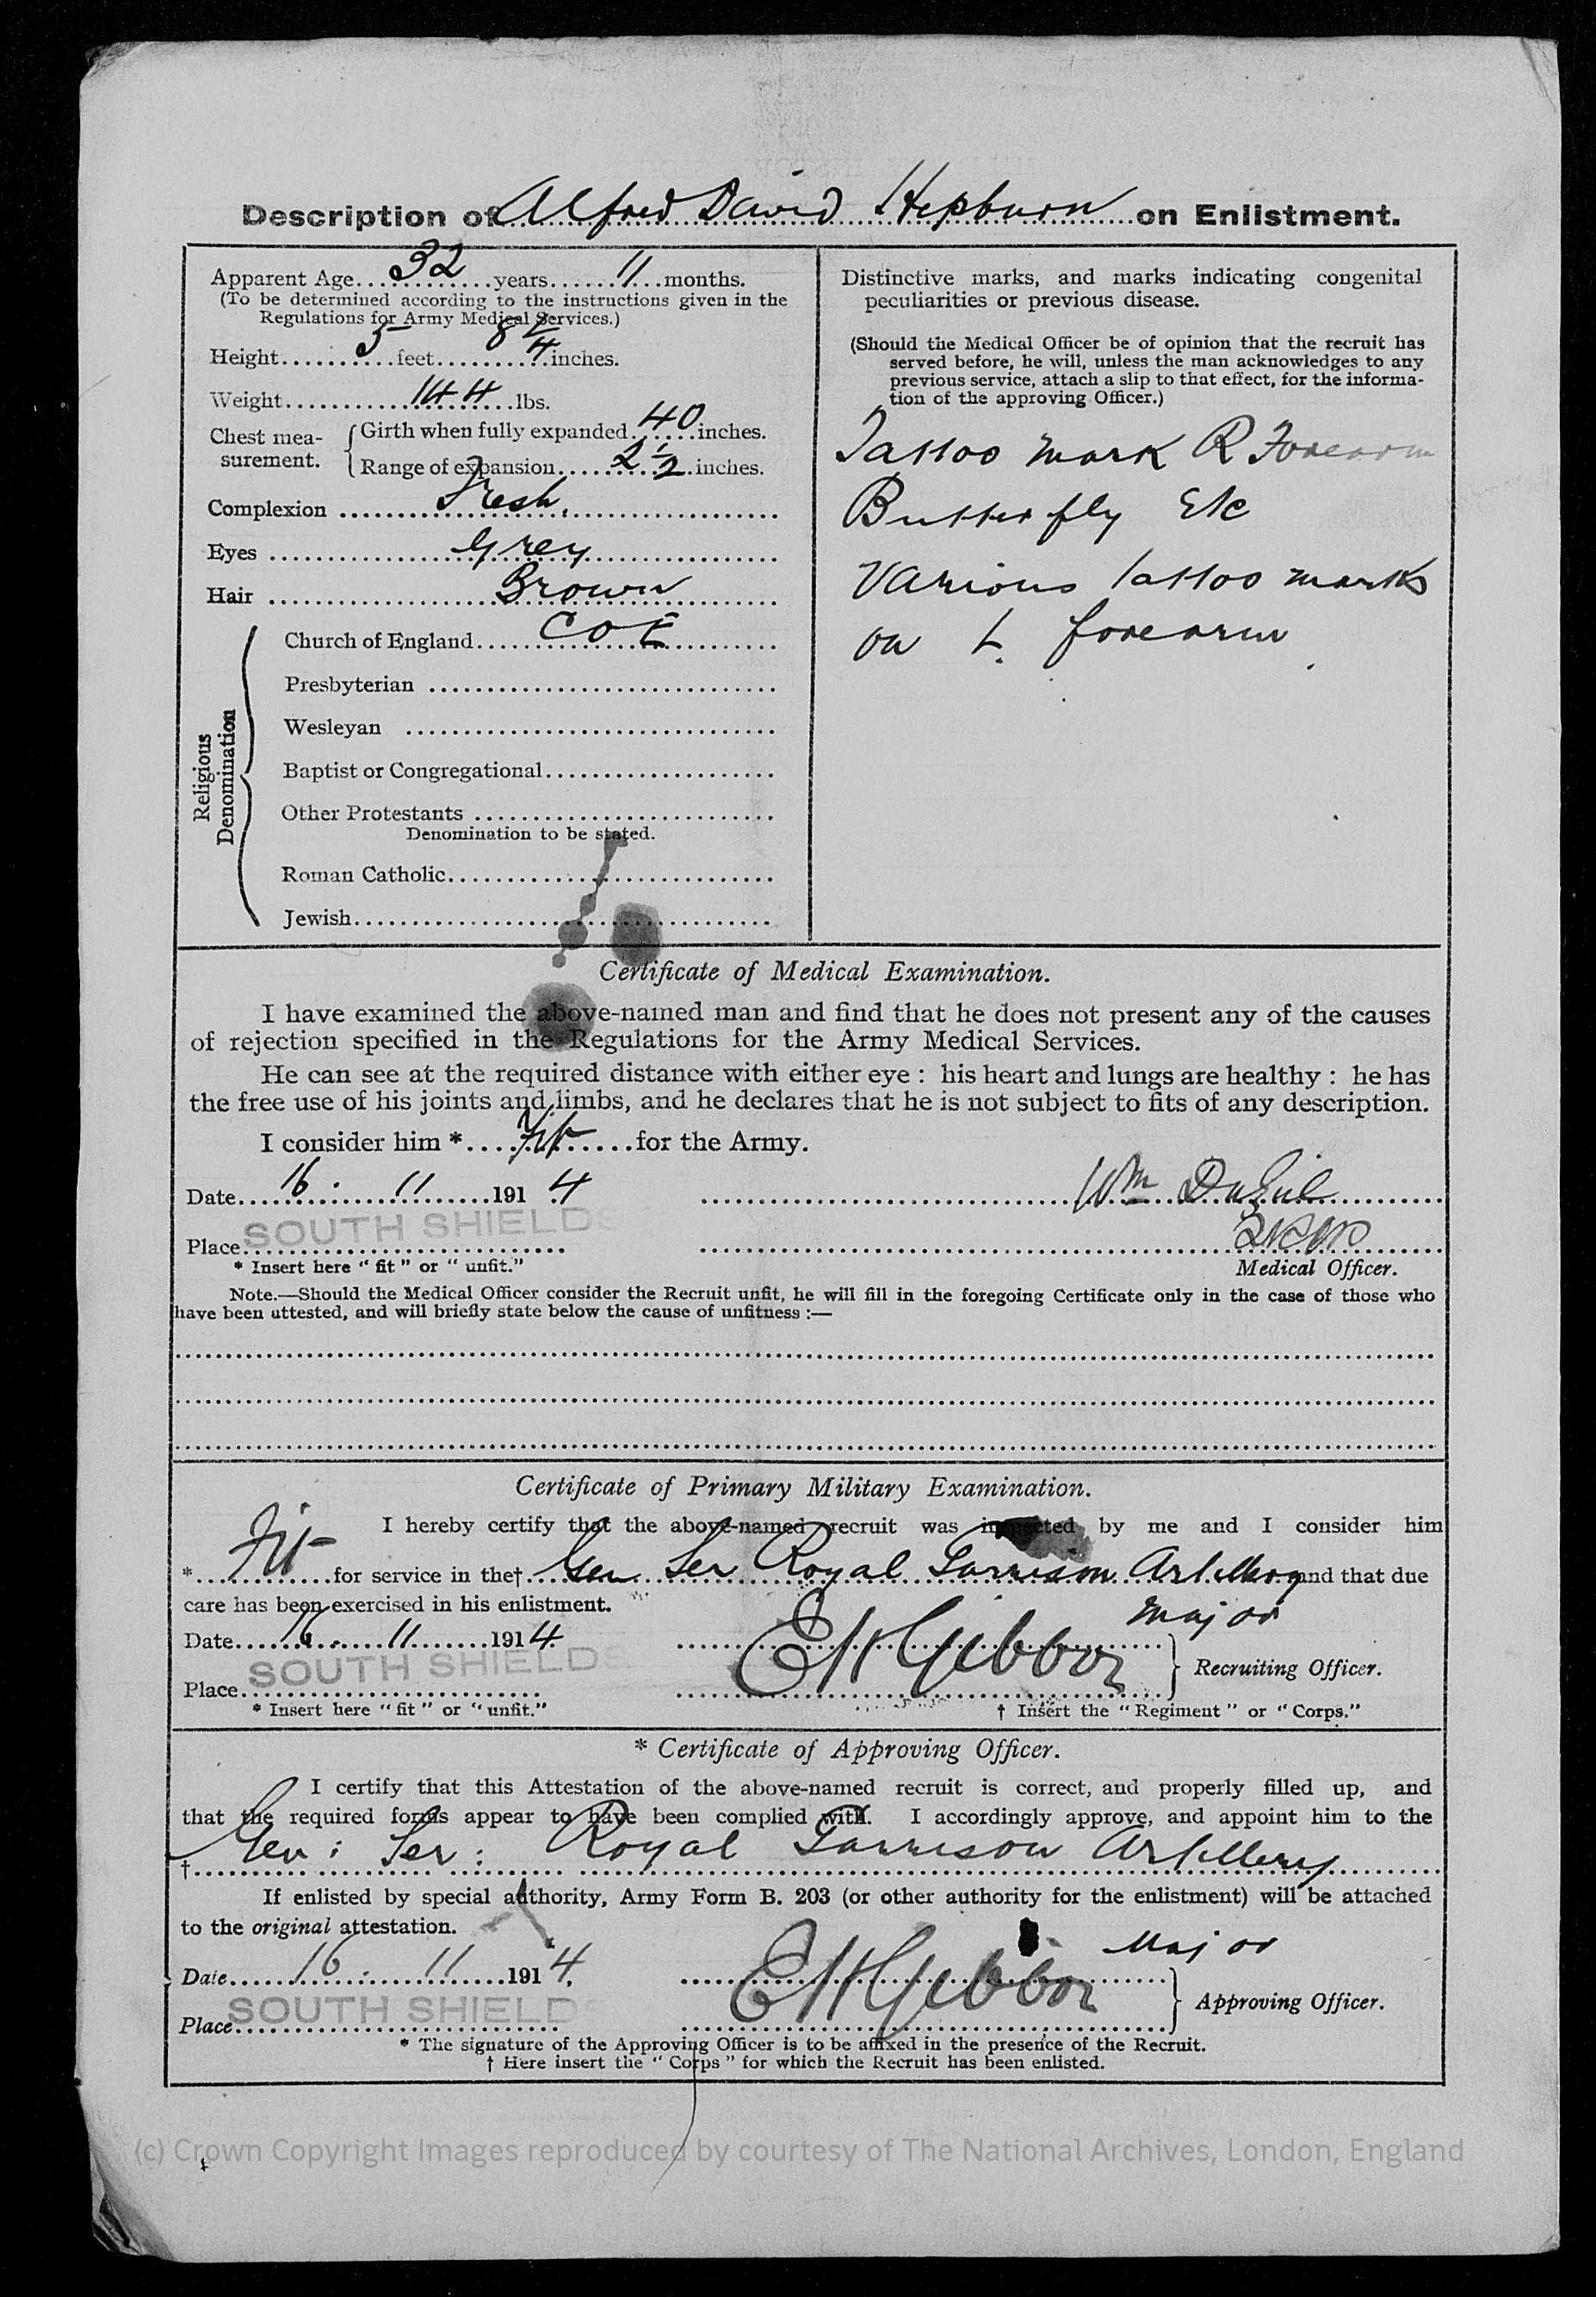 Description of Alfred David Hepburn on Enlistment.
Apparent Age 32 years 11 months.
(To be determined according to the instructions given in the
Regulations for Army Medical Services.)
Height 5 feet 8 inches.
Weight 144 lbs.
Chest mea-
surement.
Girth when fully expanded 40 inches.
Range of expansion 2 1/2 inches.
Complexion Fresh.
Eyes Grey
Hair Brown
Religious
Denomination
Church of England C of E
Presbyterian
Wesleyan
Baptist or Congregational
Other Protestants
Denomination to be stated.
Roman Catholic
Jewish
Distinctive marks, and marks indicating congenital
peculiarities or previous disease.
(Should the Medical Officer be of opinion that the recruit has
served before, he will, unless the man acknowledges to any
previous service, attach a slip to that effect, for the informa-
tion of the approving Officer.)
Tattoo mark R Forearm
Butterfly Etc
Various Tattoo marks
on L. forearm
Certificate of Medical Examination.
I have examined the above-named man and find that he does not present any of the causes
of rejection specified in the Regulations for the Army Medical Services.
He can see at the required distance with either eye : his heart and lungs are healthy : he has
the free use of his joints and limbs, and he declares that he is not subject to fits of any description.
I consider him * fit for the Army.
Date 16 . 11 1914
Wm
Place SOUTH SHIELDS
* Insert here “ fit ” or “ unfit.”
Medical Officer.
Note.—Should the Medical Officer consider the Recruit unfit, he will fill in the foregoing Certificate only in the case of those who
have been attested, and will briefly state below the cause of unfitness :—
Certificate of Primary Military Examination.
I hereby certify that the above-named recruit was inspected by me and I consider him
* Fit for service in the† Gen Ser Royal Garrison Artillery and that due
care has been exercised in his enlistment.
Major
Date 16 . 11 1914
Recruiting Officer.
Place SOUTH SHIELDS
* Insert here “ fit ” or “ unfit.”
† Insert the “ Regiment ” or “ Corps.”
* Certificate of Approving Officer.
I certify that this Attestation of the above-named recruit is correct, and properly filled up, and
that the required forms appear to have been complied with. I accordingly approve, and appoint him to the
† Gen : Ser : Royal Garrison Artillery
If enlisted by special authority, Army Form B. 203 (or other authority for the enlistment) will be attached
to the original attestation.
Major
Date 16 . 11 1914.
Approving Officer.
Place SOUTH SHIELDS
* The signature of the Approving Officer is to be affixed in the presence of the Recruit.
† Here insert the “ Corps ” for which the Recruit has been enlisted.
(c) Crown Copyright Images reproduced by courtesy of The National Archives, London, England